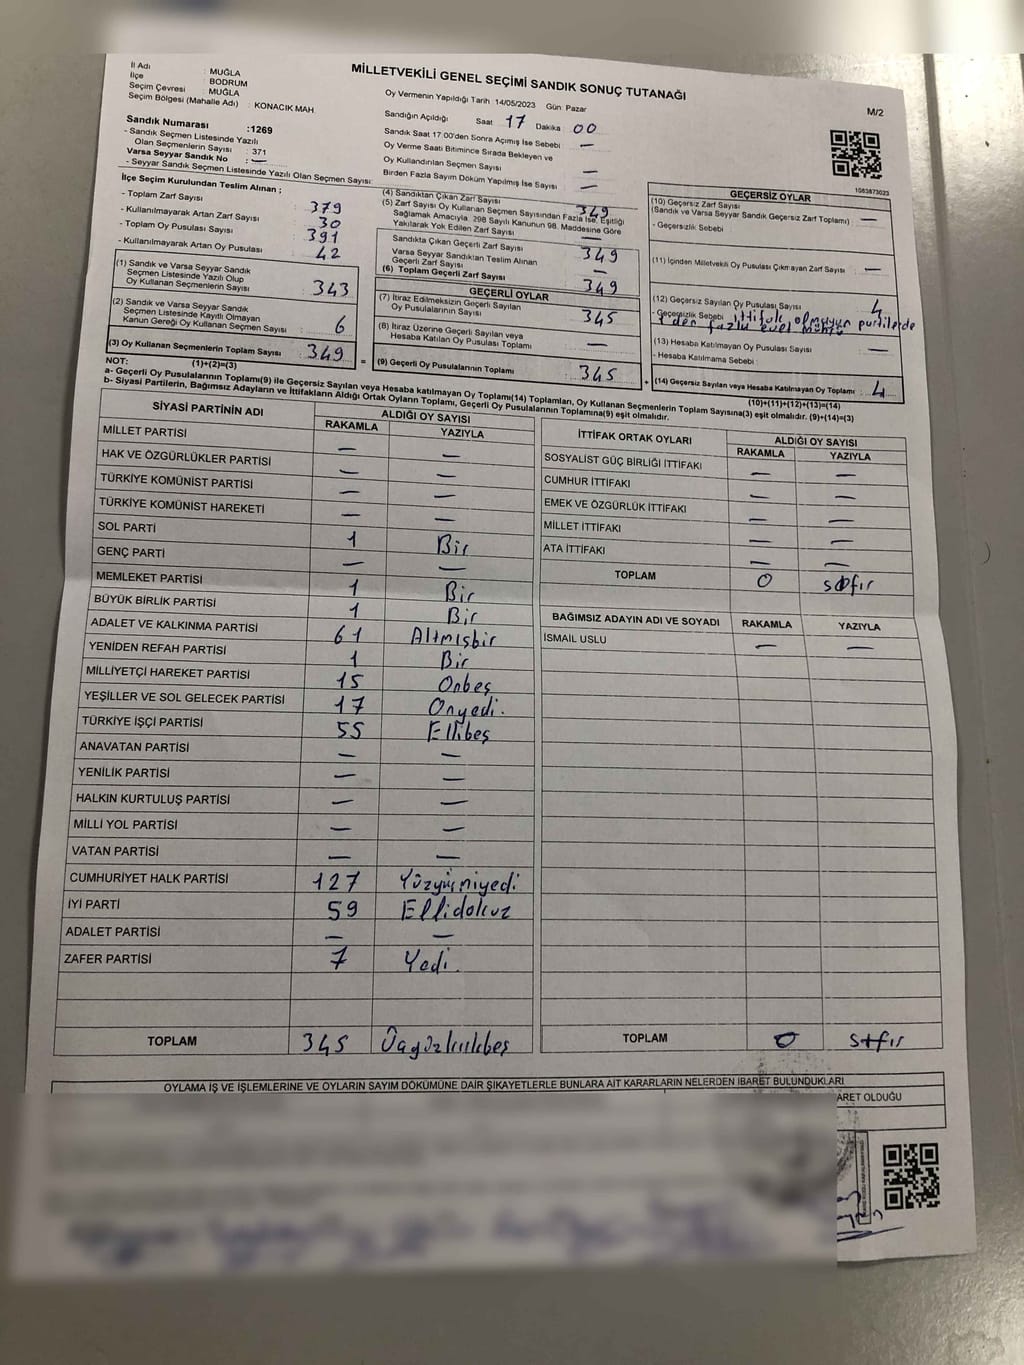 MİLLETVEKİLİ GENEL SEÇİMİ SANDIK SONUÇ TUTANAĞI
M/2
İl Adı : MUĞLA
İlçe : BODRUM
Seçim Çevresi : MUĞLA
Seçim Bölgesi (Mahalle Adı) : KONACIK MAH.
Sandık Numarası :1269
- Sandık Seçmen Listesinde Yazılı
Olan Seçmenlerin Sayısı : 371
Varsa Seyyar Sandık No : —
- Seyyar Sandık Seçmen Listesinde Yazılı Olan Seçmen Sayısı:
Oy Vermenin Yapıldığı Tarih 14/05/2023 Gün: Pazar
Sandığın Açıldığı Saat 17 Dakika 00
Sandık Saat 17.00'den Sonra Açılmış İse Sebebi —
Oy Verme Saati Bitiminde Sırada Bekleyen ve
Oy Kullandırılan Seçmen Sayısı —
Birden Fazla Sayım Döküm Yapılmış İse Sayısı —
1083873023
İlçe Seçim Kurulundan Teslim Alınan ;
- Toplam Zarf Sayısı 379
- Kullanılmayarak Artan Zarf Sayısı 30
- Toplam Oy Pusulası Sayısı 391
- Kullanılmayarak Artan Oy Pusulası 42
(1) Sandık ve Varsa Seyyar Sandık
Seçmen Listesinde Yazılı Olup
Oy Kullanan Seçmenlerin Sayısı : 343
(2) Sandık ve Varsa Seyyar Sandık
Seçmen Listesinde Kayıtlı Olmayan
Kanun Gereği Oy Kullanan Seçmen Sayısı : 6
(3) Oy Kullanan Seçmenlerin Toplam Sayısı : 349
(1)+(2)=(3)
(4) Sandıktan Çıkan Zarf Sayısı 349
(5) Zarf Sayısı Oy Kullanan Seçmen Sayısından Fazla ise, Eşitliği
Sağlamak Amacıyla, 298 Sayılı Kanunun 98. Maddesine Göre
Yakılarak Yok Edilen Zarf Sayısı —
Sandıkta Çıkan Geçerli Zarf Sayısı 349
Varsa Seyyar Sandıktan Teslim Alınan
Geçerli Zarf Sayısı —
(6) Toplam Geçerli Zarf Sayısı 349
GEÇERLİ OYLAR
(7) İtiraz Edilmeksizin Geçerli Sayılan
Oy Pusulalarının Sayısı 345
(8) İtiraz Üzerine Geçerli Sayılan veya
Hesaba Katılan Oy Pusulası Toplamı —
= (9) Geçerli Oy Pusulalarının Toplamı 345
GEÇERSİZ OYLAR
(10) Geçersiz Zarf Sayısı
(Sandık ve Varsa Seyyar Sandık Geçersiz Zarf Toplamı) —
- Geçersizlik Sebebi
(11) İçinden Milletvekili Oy Pusulası Çıkmayan Zarf Sayısı —
(12) Geçersiz Sayılan Oy Pusulası Sayısı 4
- Geçersizlik Sebebi ittifak olmayan partilerde
1 den fazla evet
(13) Hesaba Katılmayan Oy Pusulası Sayısı —
- Hesaba Katılmama Sebebi :
+ (14) Geçersiz Sayılan veya Hesaba Katılmayan Oy Toplamı : 4
(10)+(11)+(12)+(13)=(14)
NOT:
a- Geçerli Oy Pusulalarının Toplamı(9) ile Geçersiz Sayılan veya Hesaba katılmayan Oy Toplamı(14) Toplamları, Oy Kullanan Seçmenlerin Toplam Sayısına(3) eşit olmalıdır. (9)+(14)=(3)
b- Siyasi Partilerin, Bağımsız Adayların ve İttifakların Aldığı Ortak Oyların Toplamı, Geçerli Oy Pusulalarının Toplamına(9) eşit olmalıdır.
SİYASİ PARTİNİN ADI ALDIĞI OY SAYISI
RAKAMLA YAZIYLA
MİLLET PARTİSİ — —
HAK VE ÖZGÜRLÜKLER PARTİSİ — —
TÜRKİYE KOMÜNİST PARTİSİ — —
TÜRKİYE KOMÜNİST HAREKETİ — —
SOL PARTİ 1 Bir
GENÇ PARTİ — —
MEMLEKET PARTİSİ 1 Bir
BÜYÜK BİRLİK PARTİSİ 1 Bir
ADALET VE KALKINMA PARTİSİ 61 Altmışbir
YENİDEN REFAH PARTİSİ 1 Bir
MİLLİYETÇİ HAREKET PARTİSİ 15 Onbeş
YEŞİLLER VE SOL GELECEK PARTİSİ 17 Onyedi.
TÜRKİYE İŞÇİ PARTİSİ 55 Ellibeş
ANAVATAN PARTİSİ — —
YENİLİK PARTİSİ — —
HALKIN KURTULUŞ PARTİSİ — —
MİLLİ YOL PARTİSİ — —
VATAN PARTİSİ — —
CUMHURİYET HALK PARTİSİ 127 Yüzyirmiyedi
İYİ PARTİ 59 Ellidokuz
ADALET PARTİSİ — —
ZAFER PARTİSİ 7 Yedi.
TOPLAM 345 Üçyüzkırkbeş
İTTİFAK ORTAK OYLARI ALDIĞI OY SAYISI
RAKAMLA YAZIYLA
SOSYALİST GÜÇ BİRLİĞİ İTTİFAKI — —
CUMHUR İTTİFAKI — —
EMEK VE ÖZGÜRLÜK İTTİFAKI — —
MİLLET İTTİFAKI — —
ATA İTTİFAKI — —
TOPLAM 0 sıfır
BAĞIMSIZ ADAYIN ADI VE SOYADI RAKAMLA YAZIYLA
İSMAİL USLU — —
TOPLAM 0 sıfır
OYLAMA İŞ VE İŞLEMLERİNE VE OYLARIN SAYIM DÖKÜMÜNE DAİR ŞİKAYETLERLE BUNLARA AİT KARARLARIN NELERDEN İBARET BULUNDUKLARI
ARET OLDUĞU